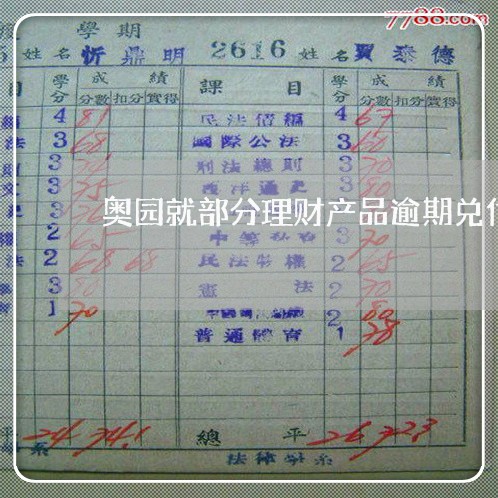 7788.com
學期
姓名 忻鼎明 2616 姓名 賈泰德
目 學分 成績 課目 學分 成績
分數 扣分 實得 分數 扣分 實得
4 81 民法債編 4 67
法 3 68 國際公法 3 60
3 刑法總則 3 70
文 3 75 西洋通史 3 80
奥园就部分理财产品逾期兑付
2 65 3 70
法 2 68 68 民法物權 2 65
3 80 憲法 2 70
1 70 2 80
普通體育 1 78
平 24 74.1 總平 26 72.3
系 法律學系